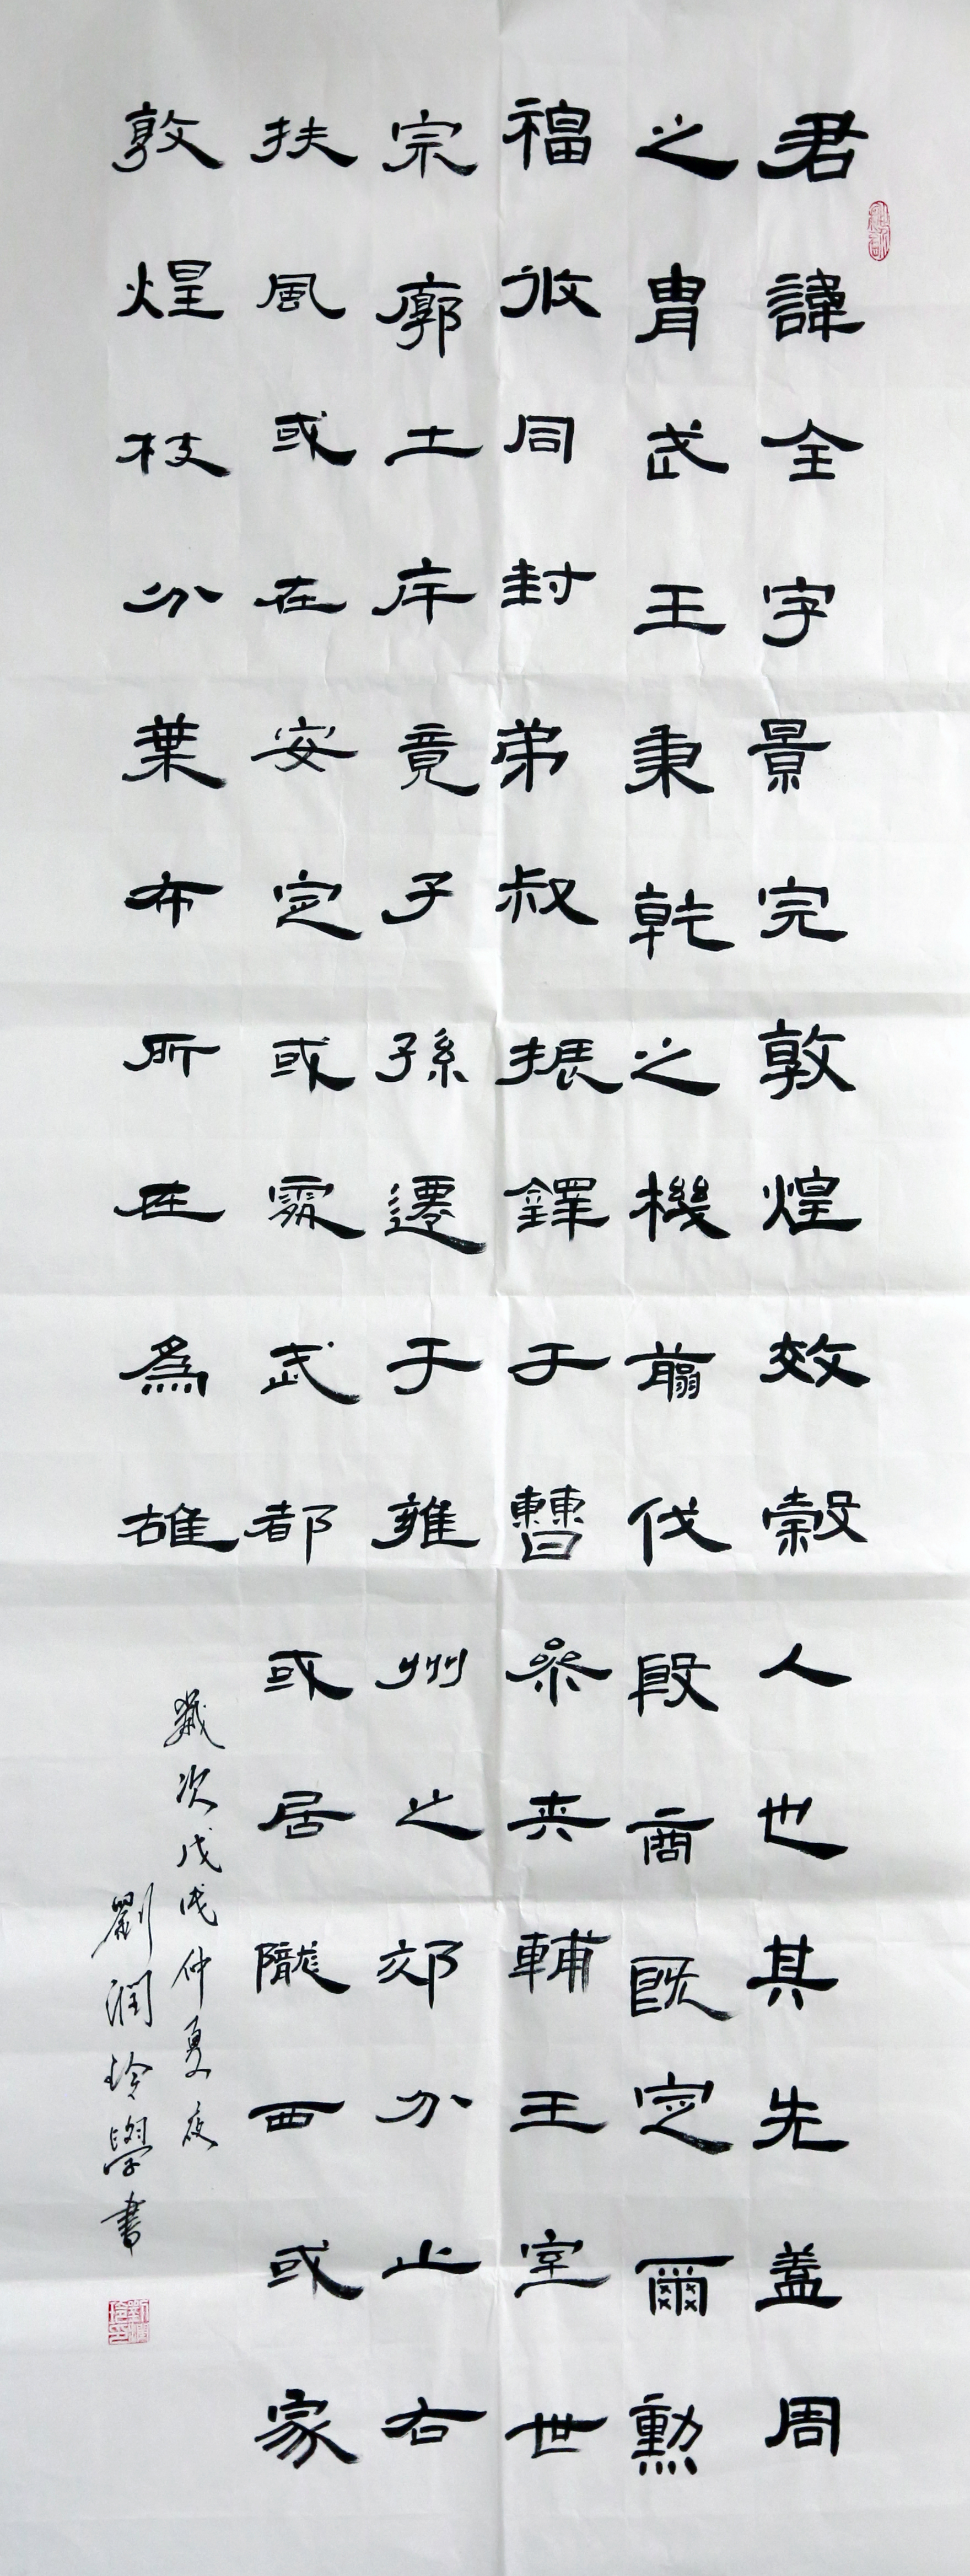 君諱全字景完敦煌效穀人也其先蓋周
之胄武王秉乾之機翦伐殷商既定爾勳
福攸同封弟叔振鐸于曹叅夾輔王室世
宗廓土斥竟子孫遷于雍州之郊分止右
扶風或在安定或處武都或居隴西或家
敦煌枝分葉布所在為雄
歲次戊戌仲夏夜
劉潤玲學書